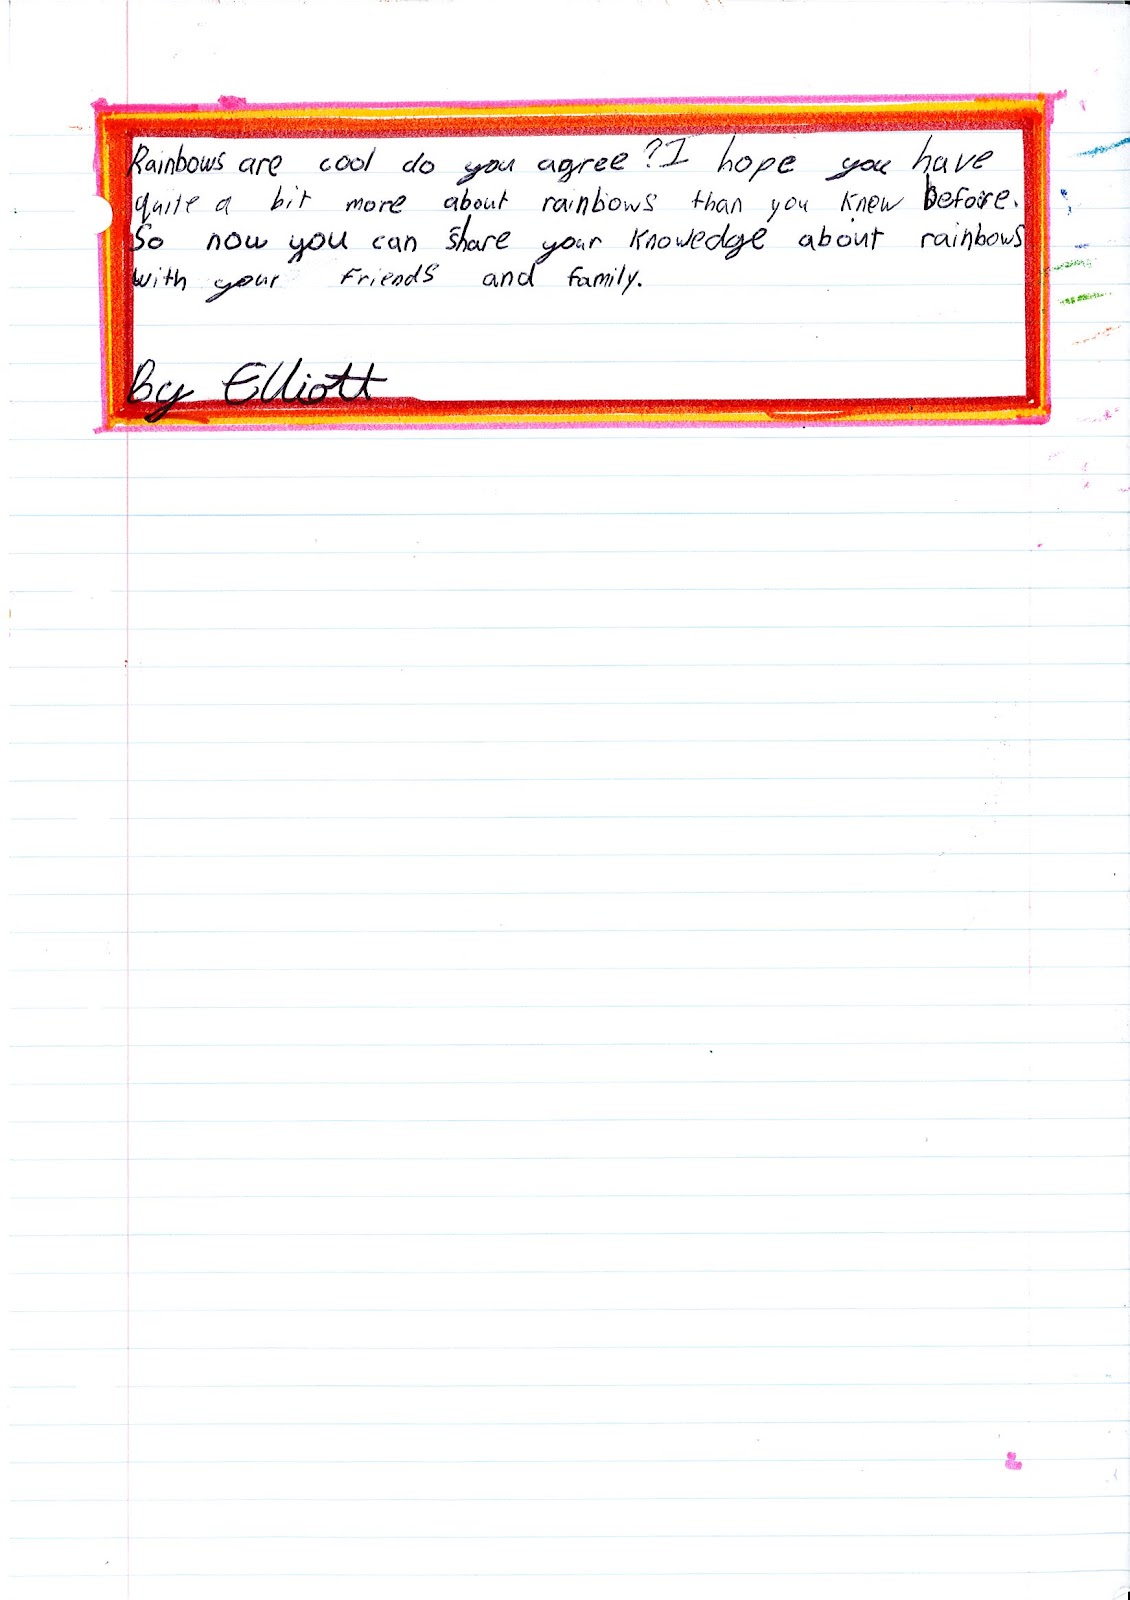 Rainbows are cool do you agree? I hope you have
quite a bit more about rainbows than you knew before.
So now you can share your knowedge about rainbows
with your friends and family.
By Elliott